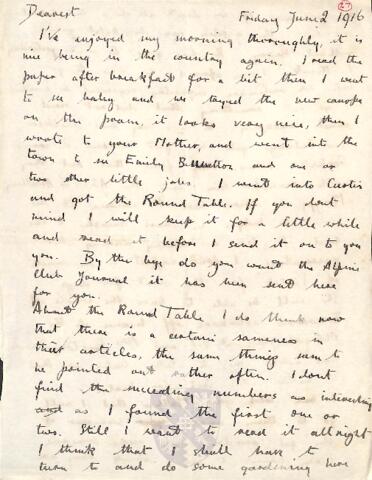 27
Dearest Friday June 2 1916
I've enjoyed my morning thoroughly, it is
nice being in the country again. I read the
paper after breakfast for a bit then I went
to see baby and we tryed the new canopy
on the pram, it looks very nice, then I
wrote to your Mother, and went into the
town to see Emily and one or
two other little jobs I went into Curtis
and got the Round Table. If you dont
mind I will keep it for a little while
and read it before I send it on to you
you. By the bye do you want the Alpine
Club Journal it has been sent here
for you.
About the Round Table I do think now
that there is a certain sameness in
their articles, the same things seem to
be pointed out rather often. I dont
find the succeeding numbers as interesting
and as I found the first one or
two. Still I want to read it allright
I think that I shall have to
turn to and do some gardening here